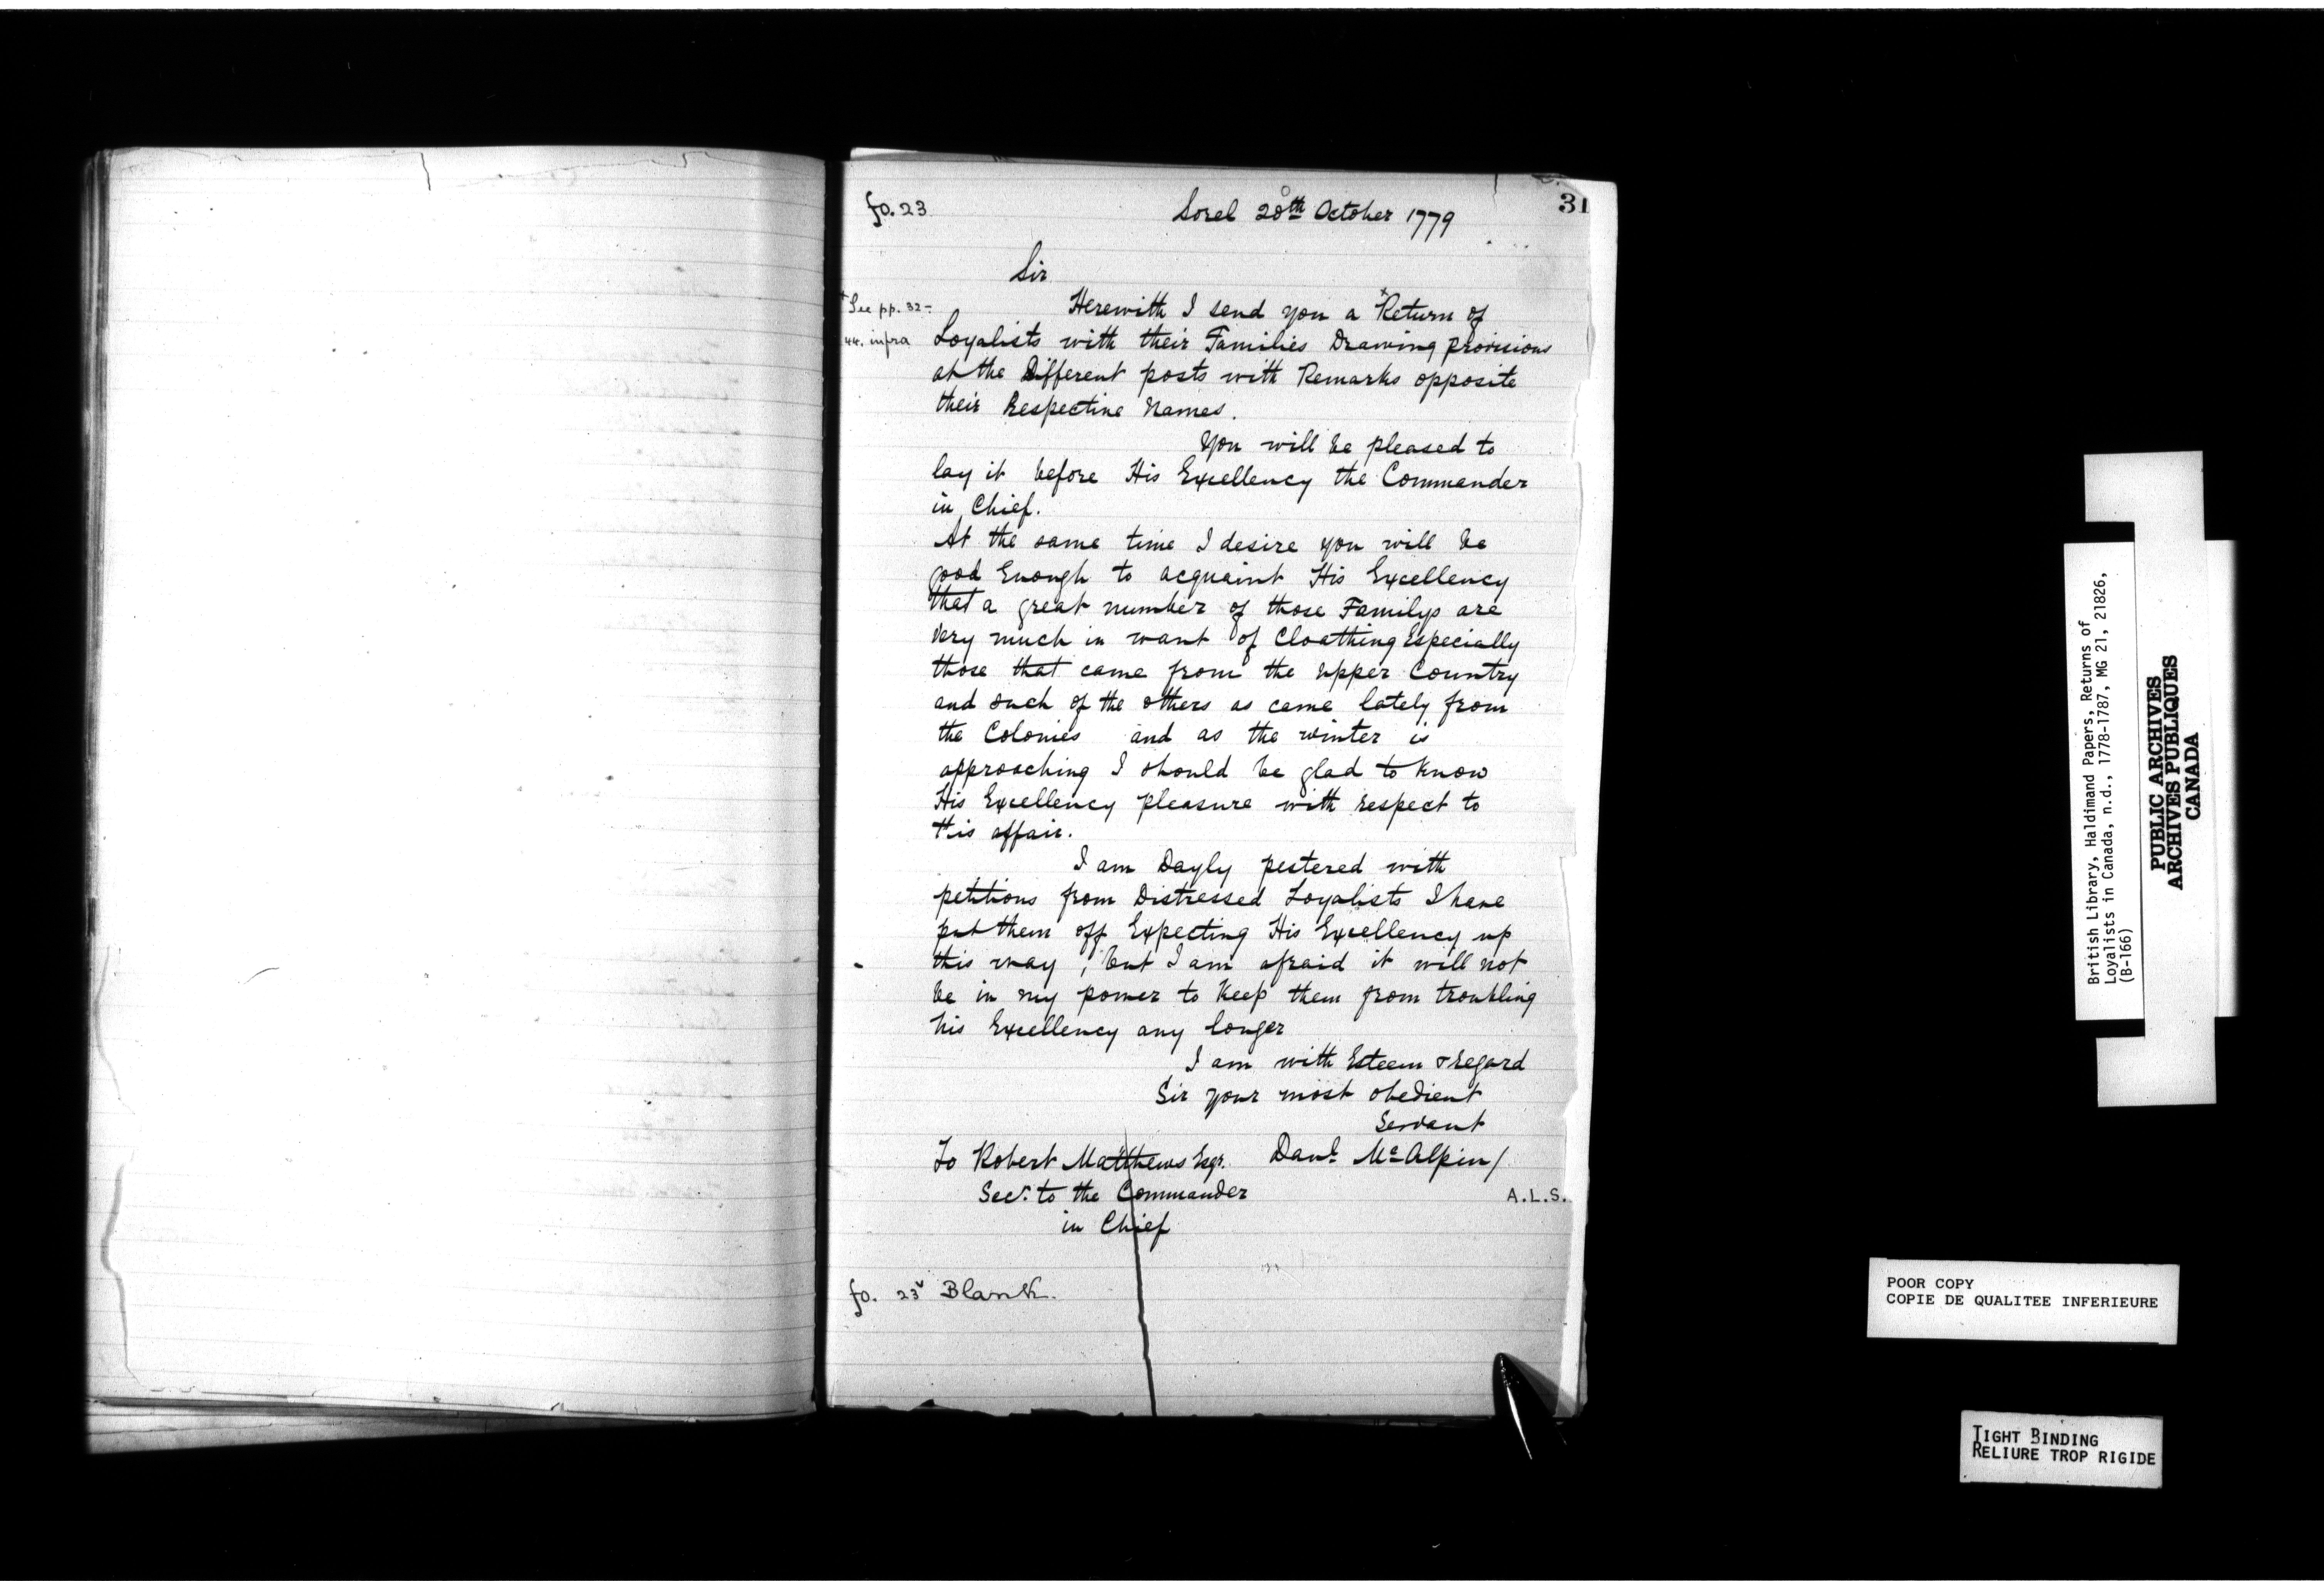 fo. 23
Sorel 20th October 1779
31
Sir
Herewith I send you a +Return of
+See pp. 32-
44. infra
Loyalists with their Families Drawing provisions
at the Different posts with Remarks opposite
their Respective Names.
You will be pleased to
lay it before His Excellency the Commander
in Chief.
At the same time I desire you will be
good Enough to acquaint His Excellency
that a great number of those Familys are
very much in want of Cloathing Especially
those that came from the upper Country
and such of the others as came lately from
the Colonies and as the winter is
approaching I should be glad to know
His Excellency pleasure with respect to
this affair.
I am Dayly pestered with
petitions from Distressed Loyalists I have
put them off Expecting His Excellency up
this way, but I am afraid it will not
be in my power to Keep them from troubling
his Excellency any longer
I am with Esteem & regard
Sir your most obedient
Servant
Danl. McAlpin/
To Robert Matthews Esqr.
Secr. to the Commander
in Chief
A.L.S.
fo. 23v Blank.
British Library, Haldimand Papers, Returns of
Loyalists in Canada, n.d., 1778-1787, MG 21, 21826,
(B-166)
PUBLIC ARCHIVES
ARCHIVES PUBLIQUES
CANADA
POOR COPY
COPIE DE QUALITEE INFERIEURE
TIGHT BINDING
RELIURE TROP RIGIDE